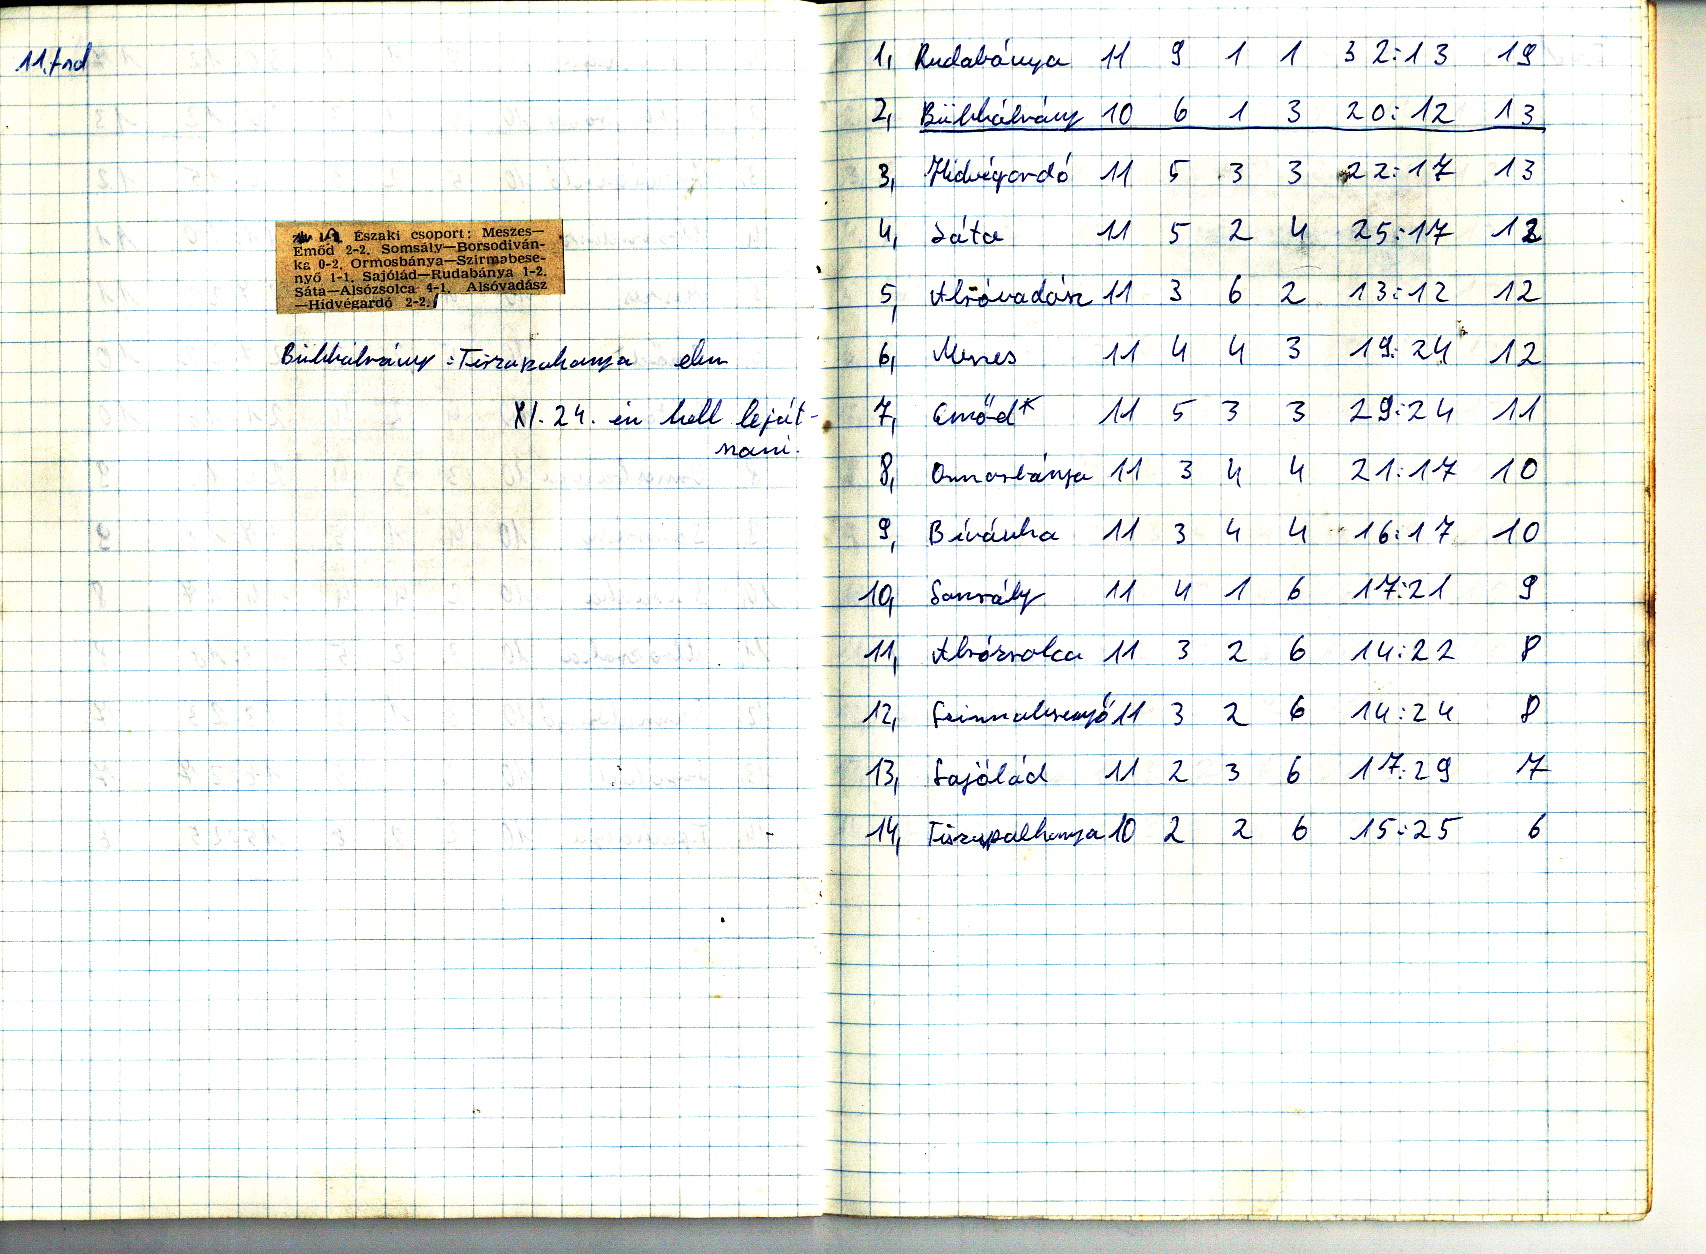 11. frd
Északi csoport: Meszes—
Emőd 2-2. Somsály—Borsodiván-
ka 0-2. Ormosbánya—Szirmabese-
nyő 1-1. Sajólád—Rudabánya 1-2.
Sáta—Alsózsolca 4-1. Alsóvadász
—Hídvégardó 2-2.
Bükkábrány : Tiszapalkonya elm
XI. 24. én kell leját-
szani.
1, Rudabánya 11 9 1 1 32:13 19
2, Bükkábrány 10 6 1 3 20:12 13
3, Hidvégardó 11 5 3 3 22:17 13
4, Sáta 11 5 2 4 25:17 12
5, Alsóvadász 11 3 6 2 13:12 12
6, Meszes 11 4 4 3 19:24 12
7, Emőd* 11 5 3 3 29:24 11
8, Ormosbánya 11 3 4 4 21:17 10
9, B.ivánka 11 3 4 4 16:17 10
10, Somsály 11 4 1 6 17:21 9
11, Alsózsolca 11 3 2 6 14:22 8
12, Szirmabesenyő 11 3 2 6 14:24 8
13, Sajólád 11 2 3 6 17:29 7
14, Tiszapalkonya 10 2 2 6 15:25 6